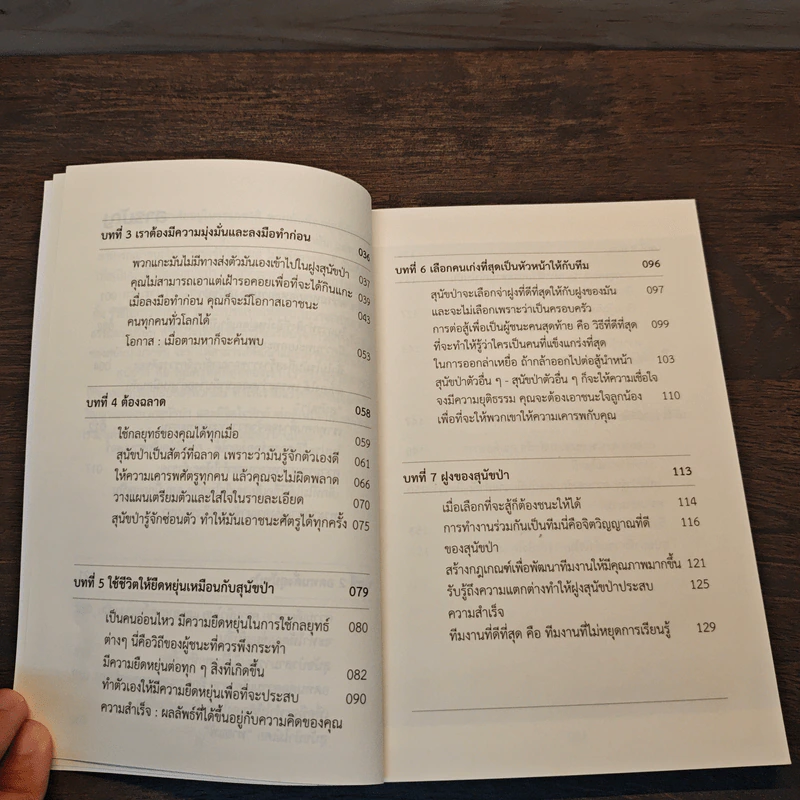 บทที่ 3 เราต้องมีความมุ่งมั่นและลงมือทำก่อน 036
พวกแกะมันไม่มีทางส่งตัวมันเองเข้าไปในฝูงสุนัขป่า 037
คุณไม่สามารถเอาแต่เฝ้ารอคอยเพื่อที่จะได้กินแกะ 039
เมื่อลงมือทำก่อน คุณก็จะมีโอกาสเอาชนะ 043
คนทุกคนทั่วโลกได้
โอกาส : เมื่อตามหาก็จะค้นพบ 053
บทที่ 4 ต้องฉลาด 058
ใช้กลยุทธ์ของคุณได้ทุกเมื่อ 059
สุนัขป่าเป็นสัตว์ที่ฉลาด เพราะว่ามันรู้จักตัวเองดี 061
ให้ความเคารพศัตรูทุกคน แล้วคุณจะไม่ผิดพลาด 066
วางแผนเตรียมตัวและใส่ใจในรายละเอียด 070
สุนัขป่ารู้จักซ่อนตัว ทำให้มันเอาชนะศัตรูได้ทุกครั้ง 075
บทที่ 5 ใช้ชีวิตให้ยืดหยุ่นเหมือนกับสุนัขป่า 079
เป็นคนอ่อนไหว มีความยืดหยุ่นในการใช้กลยุทธ์ 080
ต่างๆ นี่คือวิถีของผู้ชนะที่ควรพึงกระทำ
มีความยืดหยุ่นต่อทุก ๆ สิ่งที่เกิดขึ้น 082
ทำตัวเองให้มีความยืดหยุ่นเพื่อที่จะประสบ 090
ความสำเร็จ : ผลลัพธ์ที่ได้ขึ้นอยู่กับความคิดของคุณ
บทที่ 6 เลือกคนเก่งที่สุดเป็นหัวหน้าให้กับทีม 096
สุนัขป่าจะเลือกจ่าฝูงที่ดีที่สุดให้กับฝูงของมัน 097
และจะไม่เลือกเพราะว่าเป็นครอบครัว
การต่อสู้เพื่อเป็นผู้ชนะคนสุดท้าย คือ วิธีที่ดีที่สุด 099
ที่จะทำให้รู้ว่าใครเป็นคนที่แข็งแกร่งที่สุด
ในการออกล่าเหยื่อ ถ้ากล้าออกไปต่อสู้นำหน้า 103
สุนัขป่าตัวอื่น ๆ - สุนัขป่าตัวอื่น ๆ ก็จะให้ความเชื่อใจ
จงมีความยุติธรรม คุณจะต้องเอาชนะใจลูกน้อง 110
เพื่อที่จะให้พวกเขาให้ความเคารพกับคุณ
บทที่ 7 ฝูงของสุนัขป่า 113
เมื่อเลือกที่จะสู้ก็ต้องชนะให้ได้ 114
การทำงานร่วมกันเป็นทีมนี่คือจิตวิญญาณที่ดี 116
ของสุนัขป่า
สร้างกฎเกณฑ์เพื่อพัฒนาทีมงานให้มีคุณภาพมากขึ้น 121
รับรู้ถึงความแตกต่างทำให้ฝูงสุนัขป่าประสบ 125
ความสำเร็จ
ทีมงานที่ดีที่สุด คือ ทีมงานที่ไม่หยุดการเรียนรู้ 129